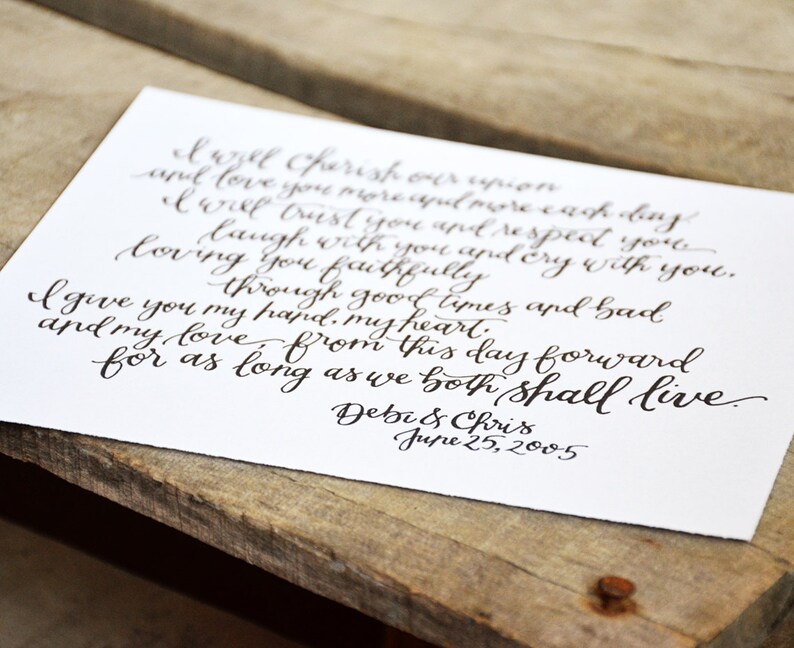 I will Cherish our union
and love you more and more each day.
I will trust you and respect you,
laugh with you and cry with you,
loving you faithfully
through good times and bad.
I give you my hand, my heart,
and my love, from this day forward
for as long as we both shall live.
Debi & Chris
June 25, 2005